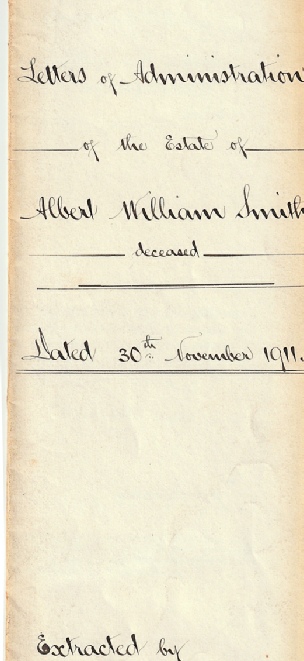 Letters of Administration
of the Estate of
Albert William Smith
deceased
Dated 30th November 1911.
Extracted by